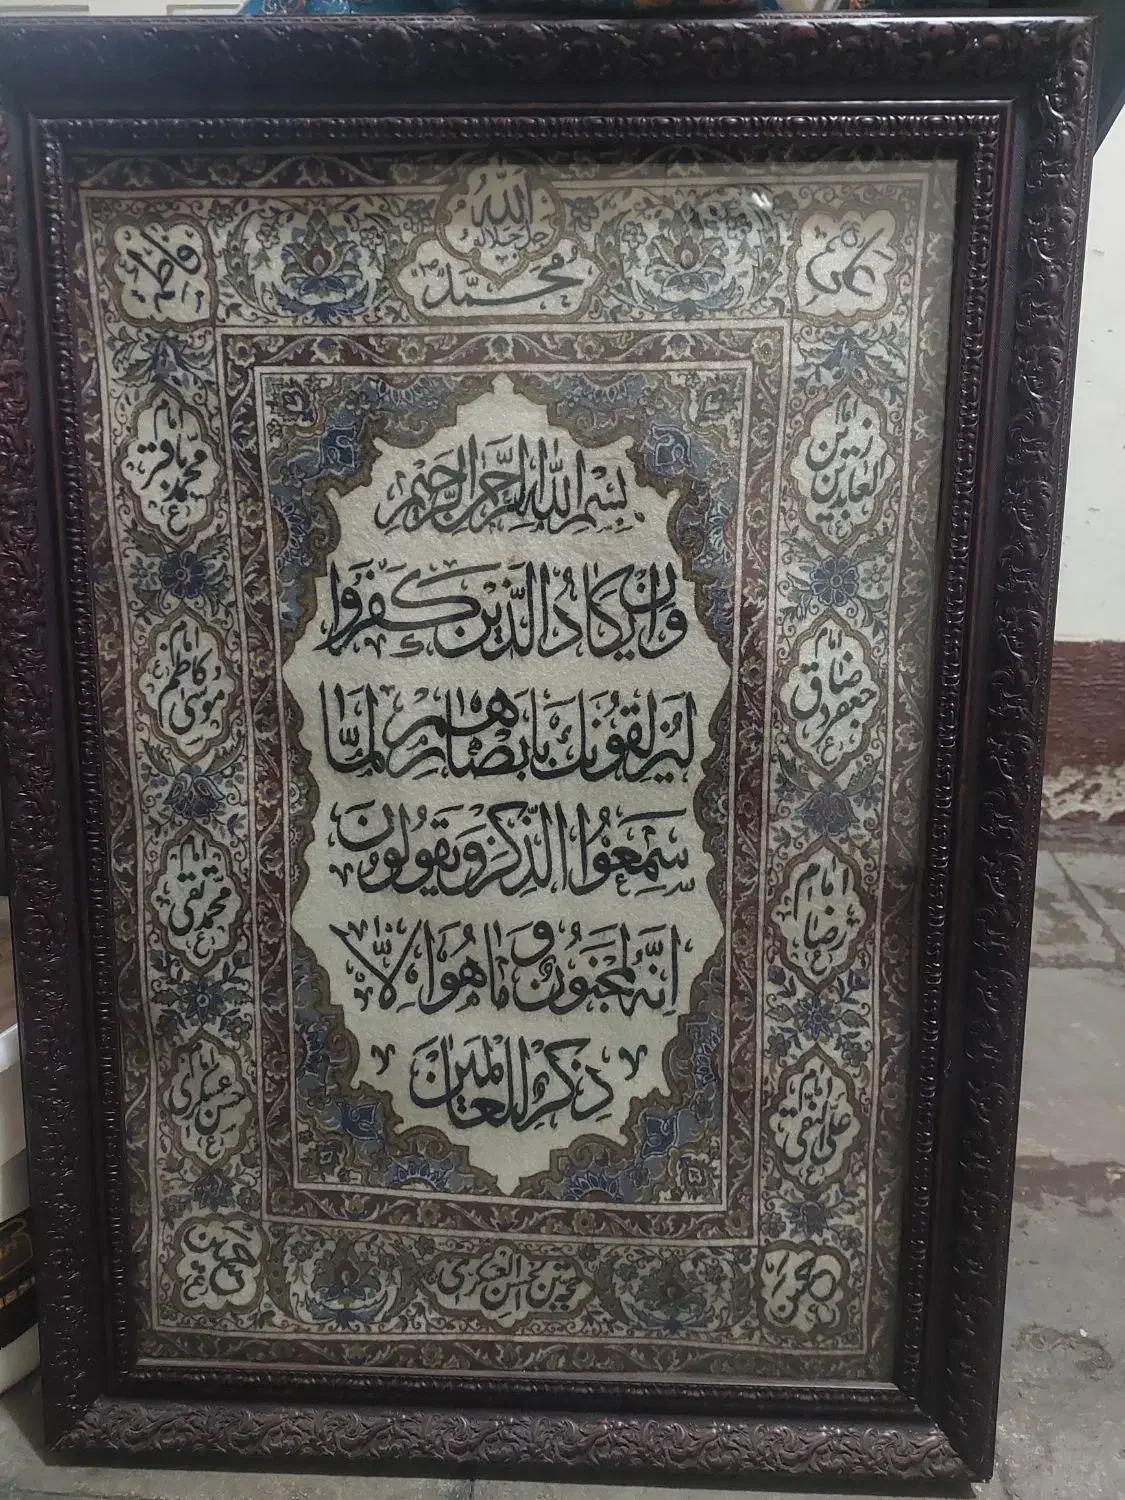 الله
جل جلاله
محمد
علی
فاطمه
بِسْمِ اللهِ الرَّحْمنِ الرَّحیمِ
وَاِنْ یَکادُ الَّذینَ کَفَرُوا
لَیُزْلِقُونَکَ بِاَبْصارِهِمْ لَمَّا
سَمِعُوا الذِّکْرَ وَیَقُولُونَ
اِنَّهُ لَمَجْنُونٌ وَما هُوَ اِلاّ
ذِکْرٌ لِلْعالَمینَ
امام زین العابدین
امام محمد باقر ع
امام جعفر صادق
امام موسی کاظم
امام رضا ع
امام محمد تقی ع
امام علی النقی ع
امام حسن عسکری ع
حسن
محمد بن حسن العسکری
حسین ع